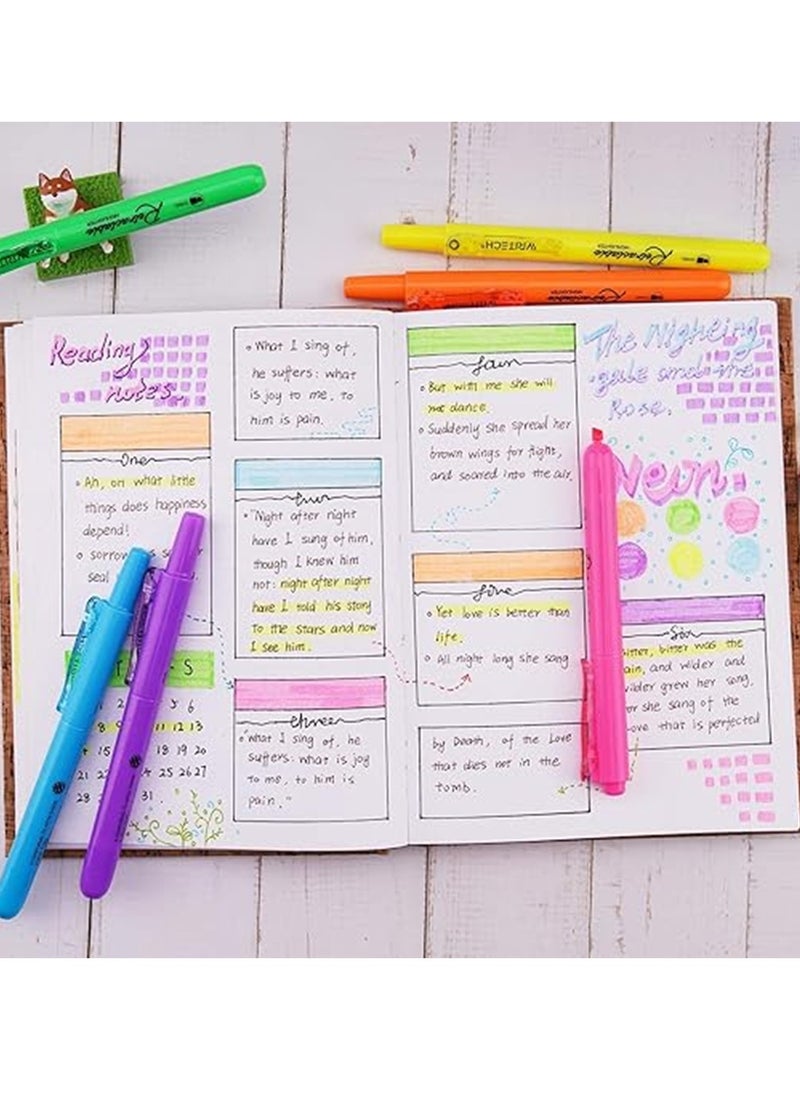 Retractable
HIGHLIGHTER
WRITECH
Retractable
HIGHLIGHTER
Retractable
Reading
notes.
One
Ah, on what little
things does happiness
depend!
sorrow
seal
T S
5 6
8 11 12 13
14 19 20
21 22 25 26 27
28 31.
What I sing of,
he suffers: what
is joy to me, to
him is pain.
two
"Night after night
have I sung of him,
though I knew him
not: night after night
have I told his story
To the stars and now
I see him.
three
"What I sing of, he
suffers: what is joy
to me, to him is
pain."
four
But with me she will
not dance.
Suddenly she spread her
brown wings for flight,
and soared into the air.
five
Yet love is better than
life.
All night long she sang
by Death, of the Love
that dies not in the
tomb.
The Nightin
gale and the
Rose.
Neon:
Six
bitter, bitter was the
pain, and wilder and
wilder grew her song,
for she sang of the
Love that is perfected